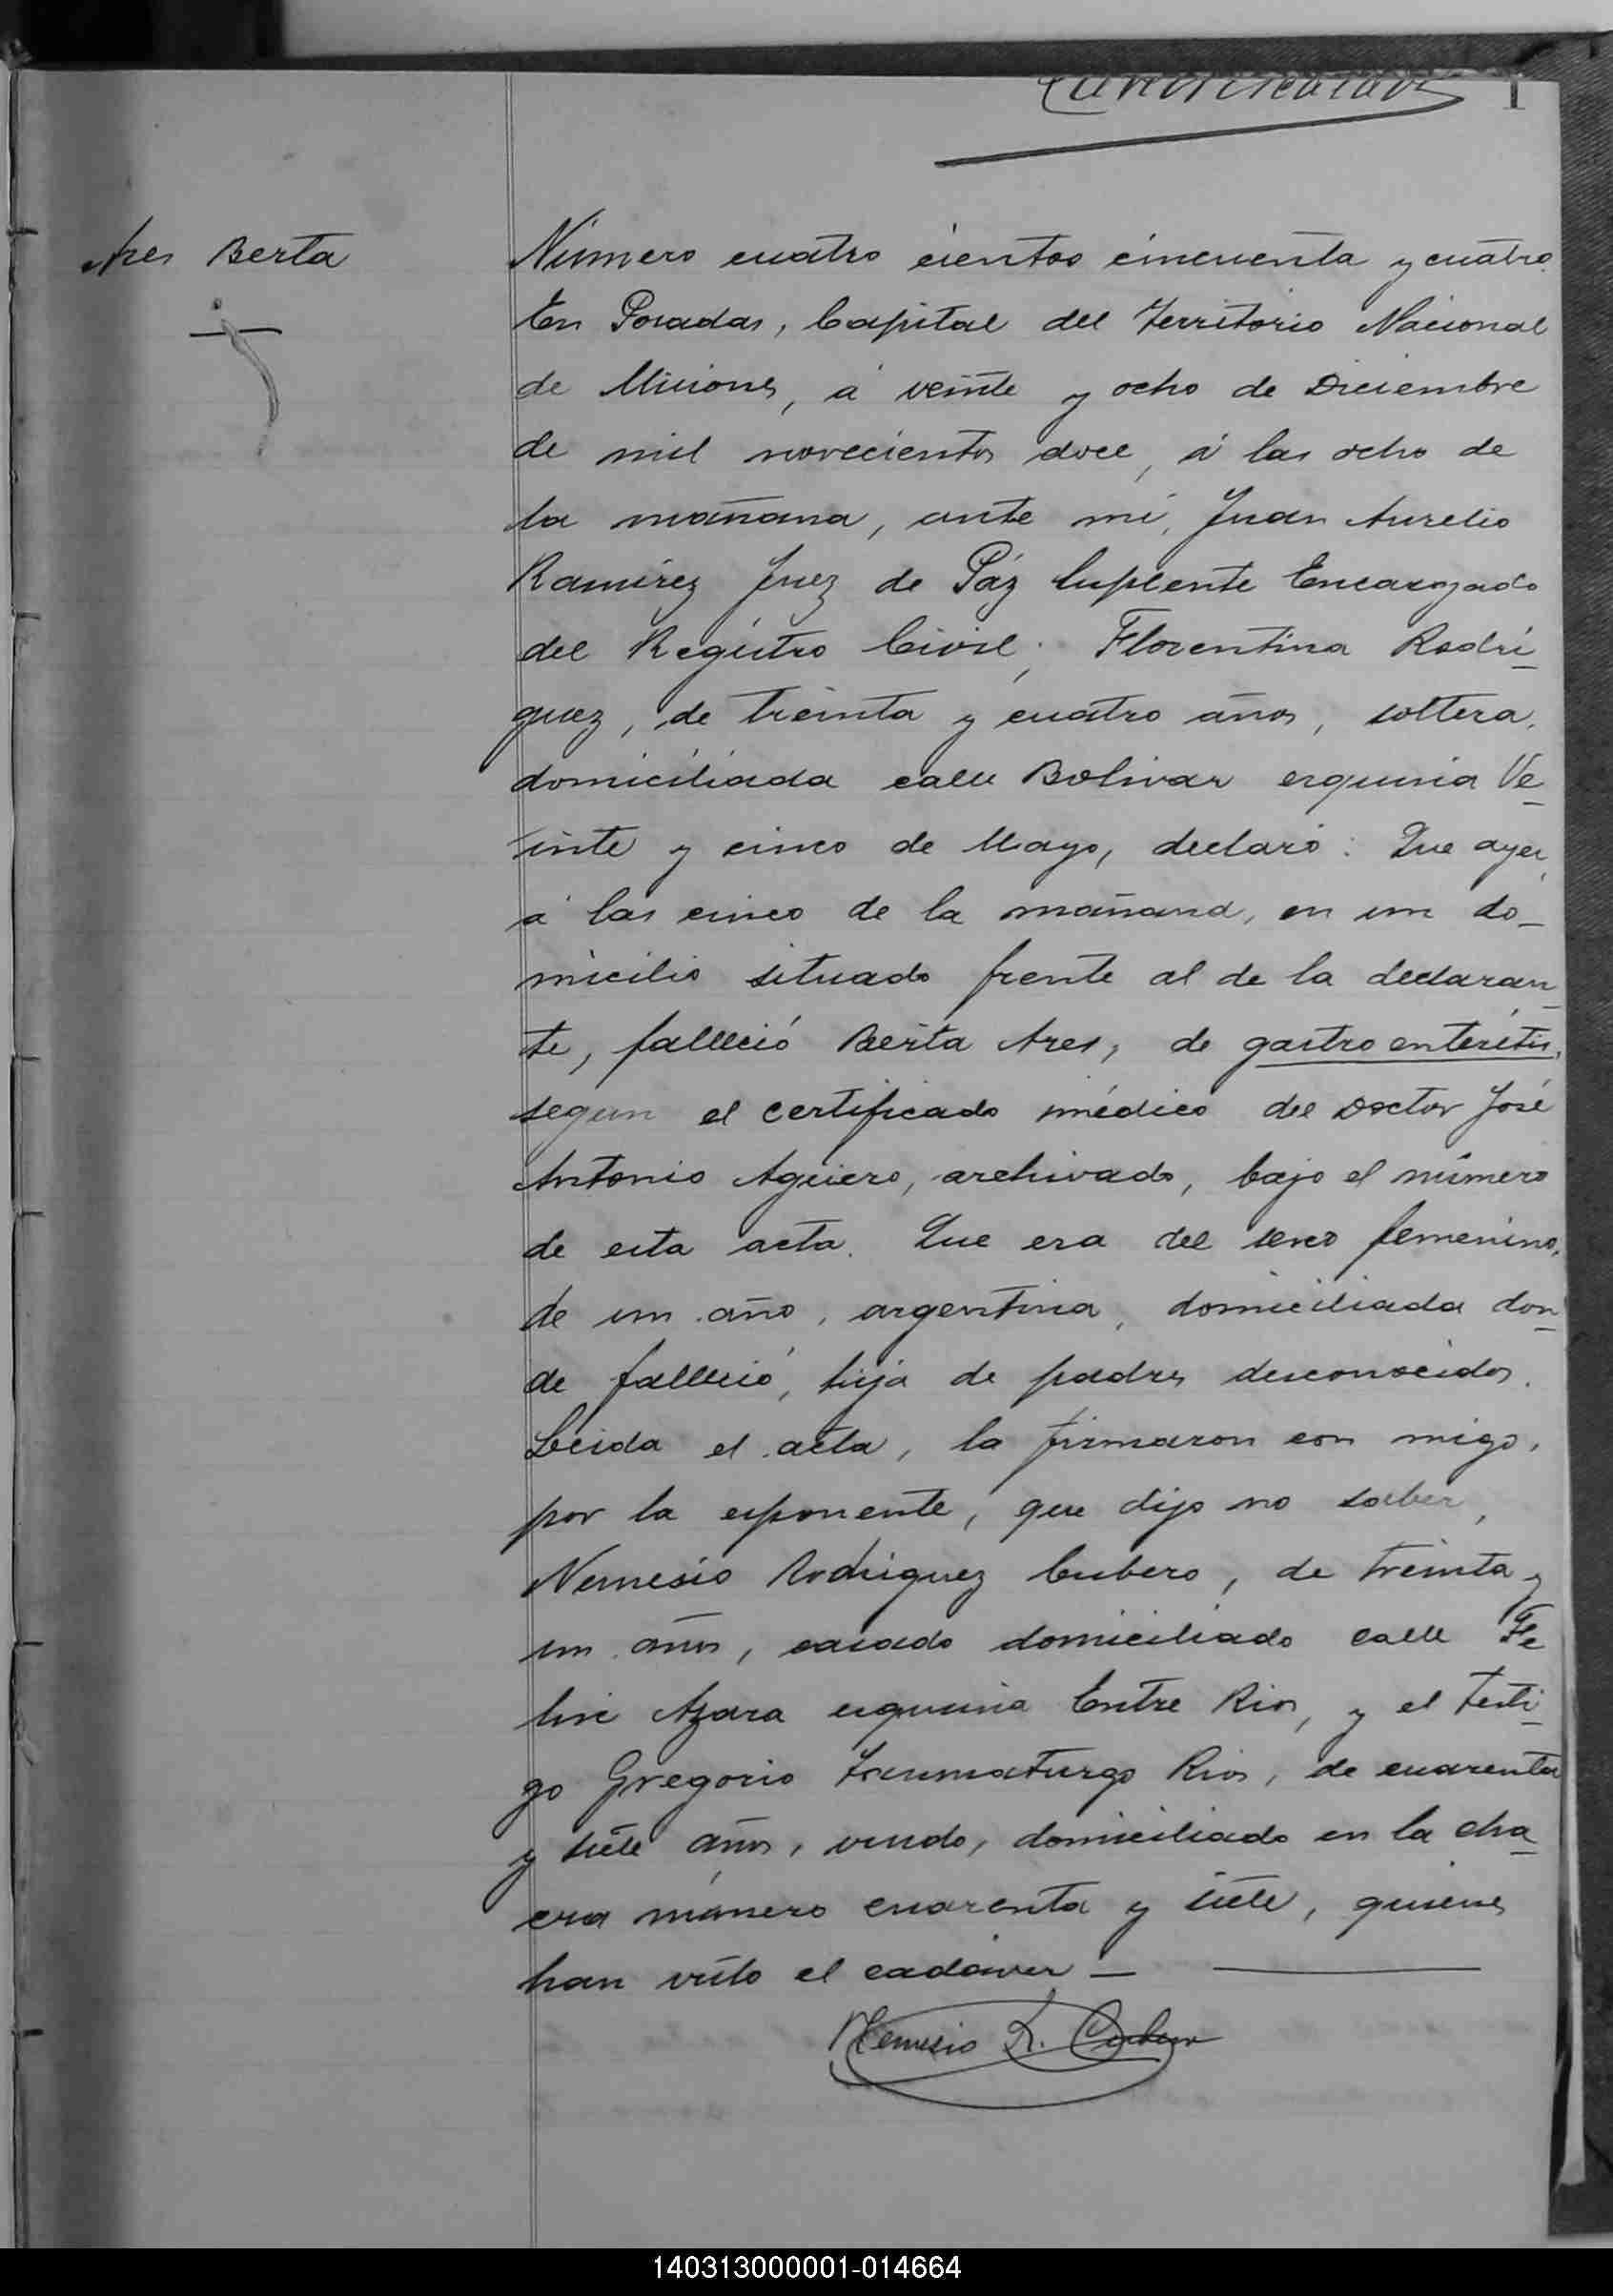 Ares Berta
Número cuatro cientos cincuenta y cuatro.
En Posadas, Capital del Territorio Nacional
de Misiones, á veinte y ocho de Diciembre
de mil novecientos doce, á las ocho de
la mañana, ante mí, Juan Aurelio
Ramírez Juez de Páz Suplente Encargado
del Registro Civil; Florentina Rodrí-
guez, de treinta y cuatro años, soltera,
domiciliada calle Bolivar esquina Ve-
inte y cinco de Mayo, declaró: Que ayer,
á las cinco de la mañana, en un do-
micilio situado frente al de la declaran-
te, falleció Berta Ares, de gastro enteritis,
segun el certificado médico del Doctor José
Antonio Agüero, archivado, bajo el número
de esta acta. Que era del sexo femenino,
de un año, argentina, domiciliada don-
de falleció, hija de padres desconocidos.
Leida el acta, la firmaron con migo,
por la exponente, que dijo no saber,
Nemesio Rodriguez Cubero, de treinta y
un años, casado domiciliado calle Fe-
lix Azara esquina Entre Rios, y el testi-
go Gregorio Taumaturgo Rios, de cuarenta
y siete años, viudo, domiciliado en la cha-
cra número cuarenta y siete, quienes
han visto el cadáver —
Nemesio R. Cubero
140313000001-014664